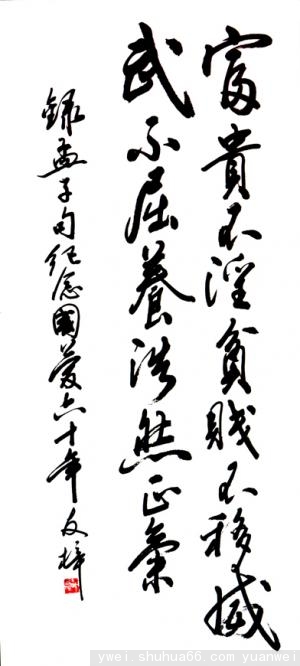 富貴不淫貧賤不移威
武不屈養浩然正氣
錄孟子句紀念國慶六十年
ywei.shuhua66.com yuanwei